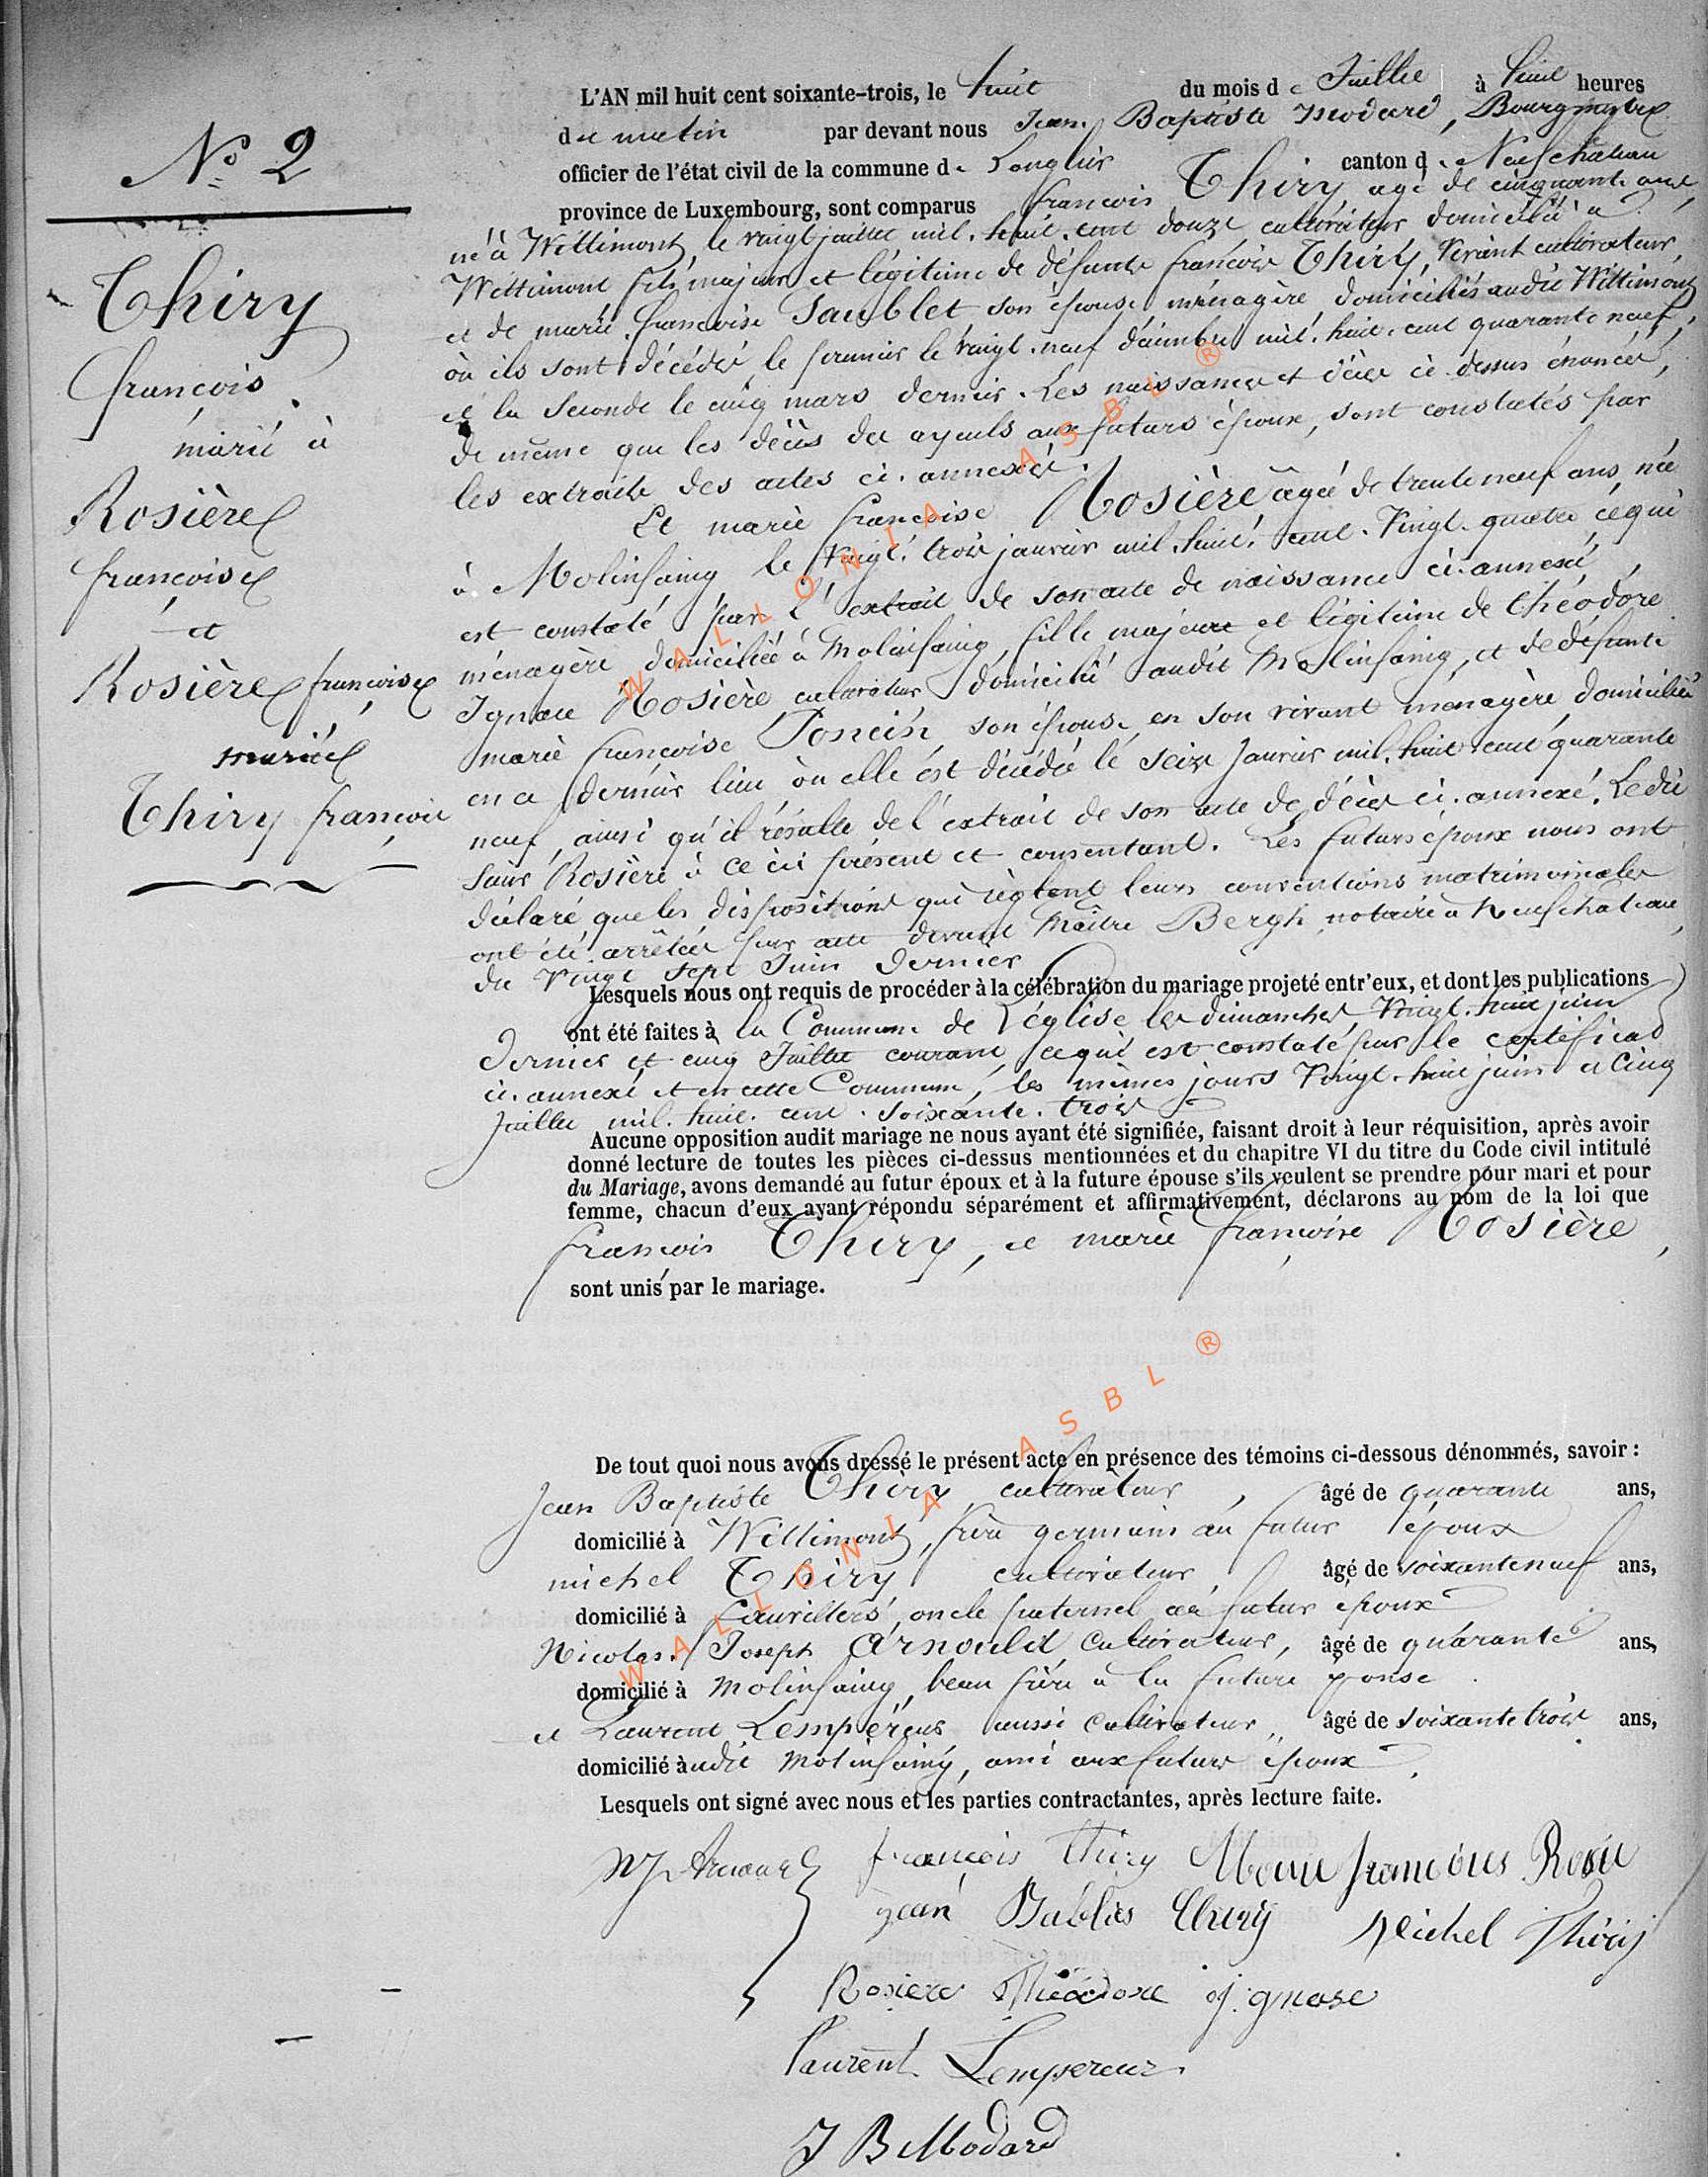 N° 2
Thiry
françois
marié à
Rosière
françoise
et
Rosière françoise
mariée
Thiry françois
L'AN mil huit cent soixante-trois, le huit du mois de Juillet à huit heures
du matin par devant nous Jean Baptiste Modard, Bourgmestre
officier de l'état civil de la commune de Longlier canton de Neufchateau
province de Luxembourg, sont comparus françois Thiry, agé de cinquante ans,
né à Wittimont, le vingt juillet mil. huit. cent douze cultivateur domicilié à
Wittimont fils majeur et légitime de défunts françois Thiry, vivant cultivateur,
et de marie françoise Saublet son épouse, ménagère, domiciliés audit Wittimont
où ils sont décédés, le premier le vingt. neuf décembre mil. huit. cent quarante neuf,
et la seconde le cinq mars dernier. Les naissance et décès ci-dessus énoncés,
de même que les décès des ayeuls aux futurs époux, sont constatés par
les extraits des actes ci. annexés.
Et marie françoise Rosière âgée de trente neuf ans, née
à Molinfaing le vingt. trois janvier mil. huit. cent. vingt. quatre, ce qui
est constaté par l'extrait de son acte de naissance ci-annexé,
ménagère domiciliée à Molinfaing, fille majeure et légitime de théodore
Ignace Rosière, cultivateur domicilié audit Molinfaing, et de défunte
marie françoise Poncin, son épouse, en son vivant ménagère domiciliée
en ce dernier lieu où elle est décédée le seize Janvier mil. huit cent quarante
neuf, ainsi qu'il résulte de l'extrait de son acte de décès ci. annexé. Ledit
sieur Rosière à ce ici présent et consentant. Les futurs époux nous ont
déclaré que les dispositions qui règlent leurs conventions matrimoniales
ont été arrêtées par acte devant Maître Bergh notaire à Neufchateau,
du vingt sept Juin dernier
Lesquels nous ont requis de procéder à la célébration du mariage projeté entr'eux, et dont les publications
ont été faites à la Commune de Léglise les dimanches vingt. huit juin
dernier et cinq Juillet courant, ce qui est constaté par le certificat
ci. annexé et en cette Commune, les mêmes jours vingt. huit juin et cinq
Juillet mil. huit. cent. soixante. trois
Aucune opposition audit mariage ne nous ayant été signifiée, faisant droit à leur réquisition, après avoir
donné lecture de toutes les pièces ci-dessus mentionnées et du chapitre VI du titre du Code civil intitulé
du Mariage, avons demandé au futur époux et à la future épouse s'ils veulent se prendre pour mari et pour
femme, chacun d'eux ayant répondu séparément et affirmativement, déclarons au nom de la loi que
françois Thiry, et marie françoise Rosière,
sont unis par le mariage.
De tout quoi nous avons dressé le présent acte en présence des témoins ci-dessous dénommés, savoir :
Jean Baptiste Thiry cultivateur, âgé de quarante ans,
domicilié à Wittimont, frère germain au futur époux
michel Thiry cultivateur, âgé de soixante neuf ans,
domicilié à fauvillers, oncle paternel au futur époux
Nicolas. Joseph Arnould, cultivateur, âgé de quarante ans,
domicilié à Molinfaing, beau frère à la future épouse
et Laurent Lempéreur aussi cultivateur, âgé de soixante trois ans,
domicilié audit Molinfaing, ami aux futurs époux.
Lesquels ont signé avec nous et les parties contractantes, après lecture faite.
NJ Arnould françois Thiry Marie françoise Rosière
jean Babtis Thiry Michel Thiry
Rosiere Théodore ignase
laurent Lempereur
J B Modard
WALLONIA ASBL ®
WALLONIA ASBL ®